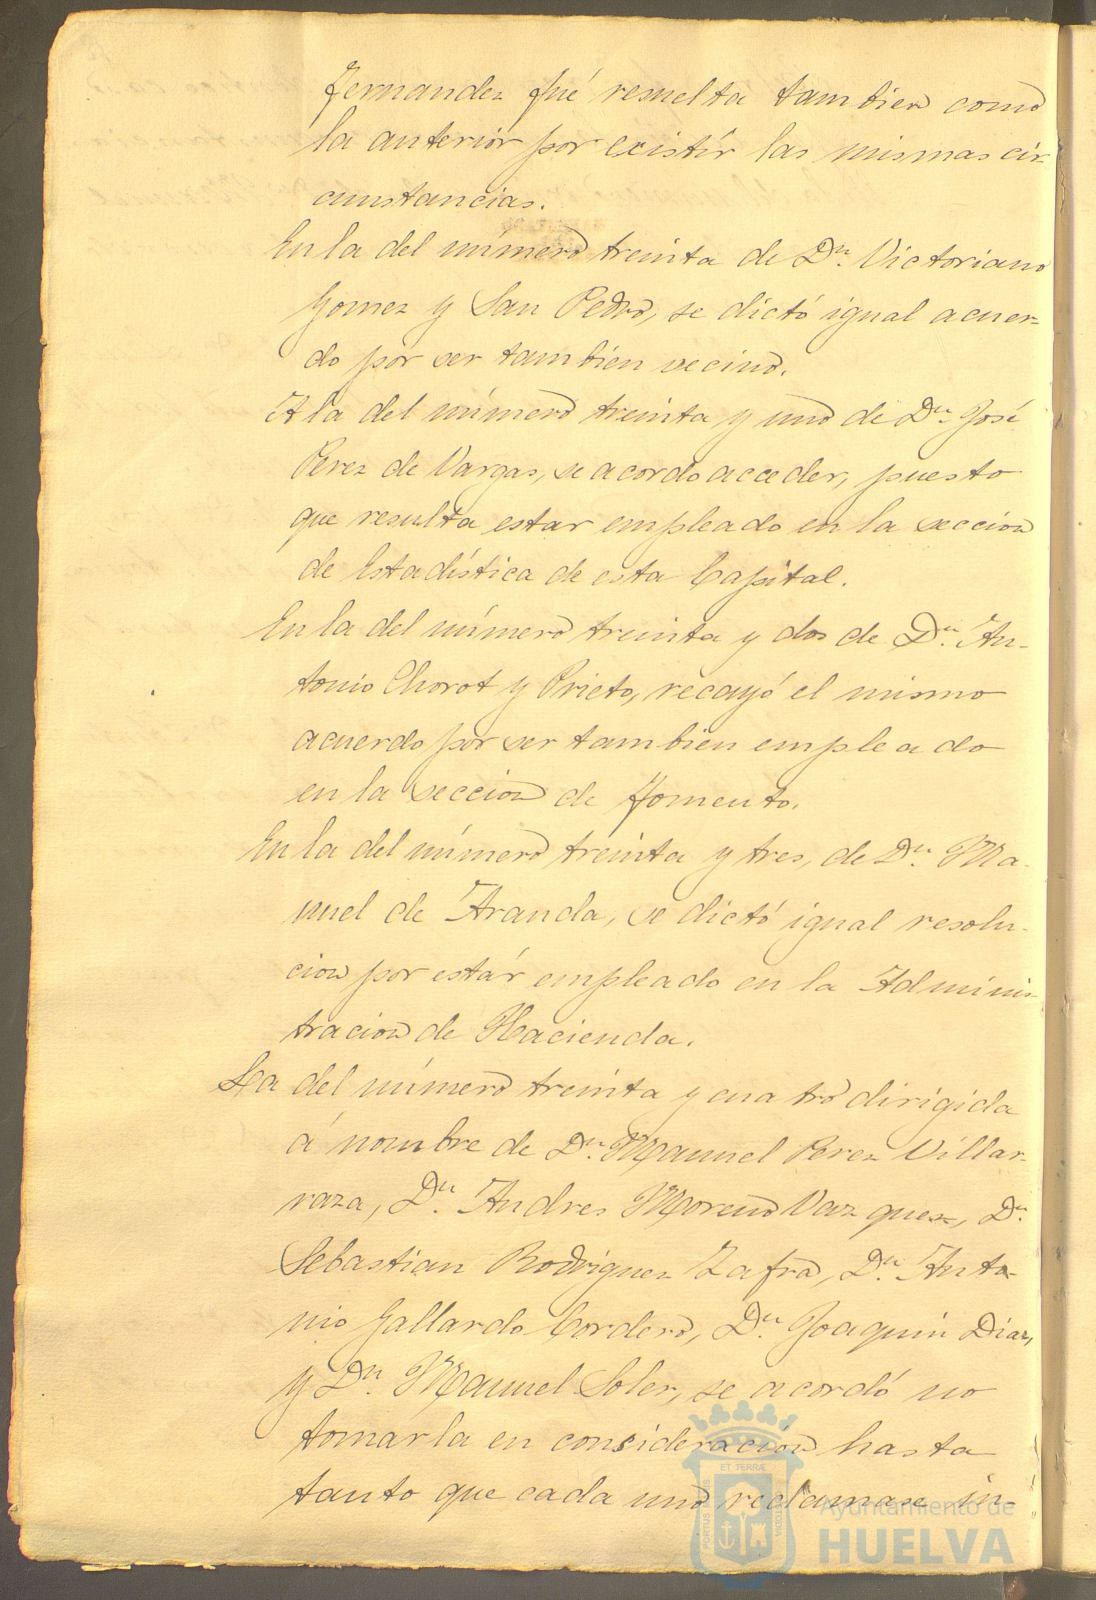 Fernandez fué resuelta tambien como
la anterior por existír las mismas cir-
cunstancias.
En la del número treinta de Dn. Victoriano
Gomez y San Pedro, se dictó igual acuer-
do por ser tambien vecino.
A la del número treinta y uno de Dn. José
Perez de Vargas, se acordo acceder, puesto
que resulta estar empleado en la seccion
de Estadística de esta Capital.
En la del número treinta y dos de Dn. An-
tonio Chorot y Prieto, recayó el mismo
acuerdo por ser tambien empleado
en la seccion de Fomento.
En la del número treinta y tres, de Dn. Ma-
nuel de Aranda, se dictó igual resolu-
cion por estár empleado en la Adminis-
tracion de Hacienda.
La del número treinta y cuatro dirigida
á nombre de Dn. Manuel Perez Villar-
raza, Dn. Andres Moreno Vazquez, Dn.
Sebastian Rodriguez Zafra, Dn. Anto-
nio Gallardo Cordero, Dn. Joaquin Diaz,
y Dn. Manuel Soler, se acordó no
tomarla en consideración hasta
tanto que cada uno reclamase in-
ET TERRÆ
PORTUS MARIS
CUSTODIA
Ayuntamiento de
HUELVA